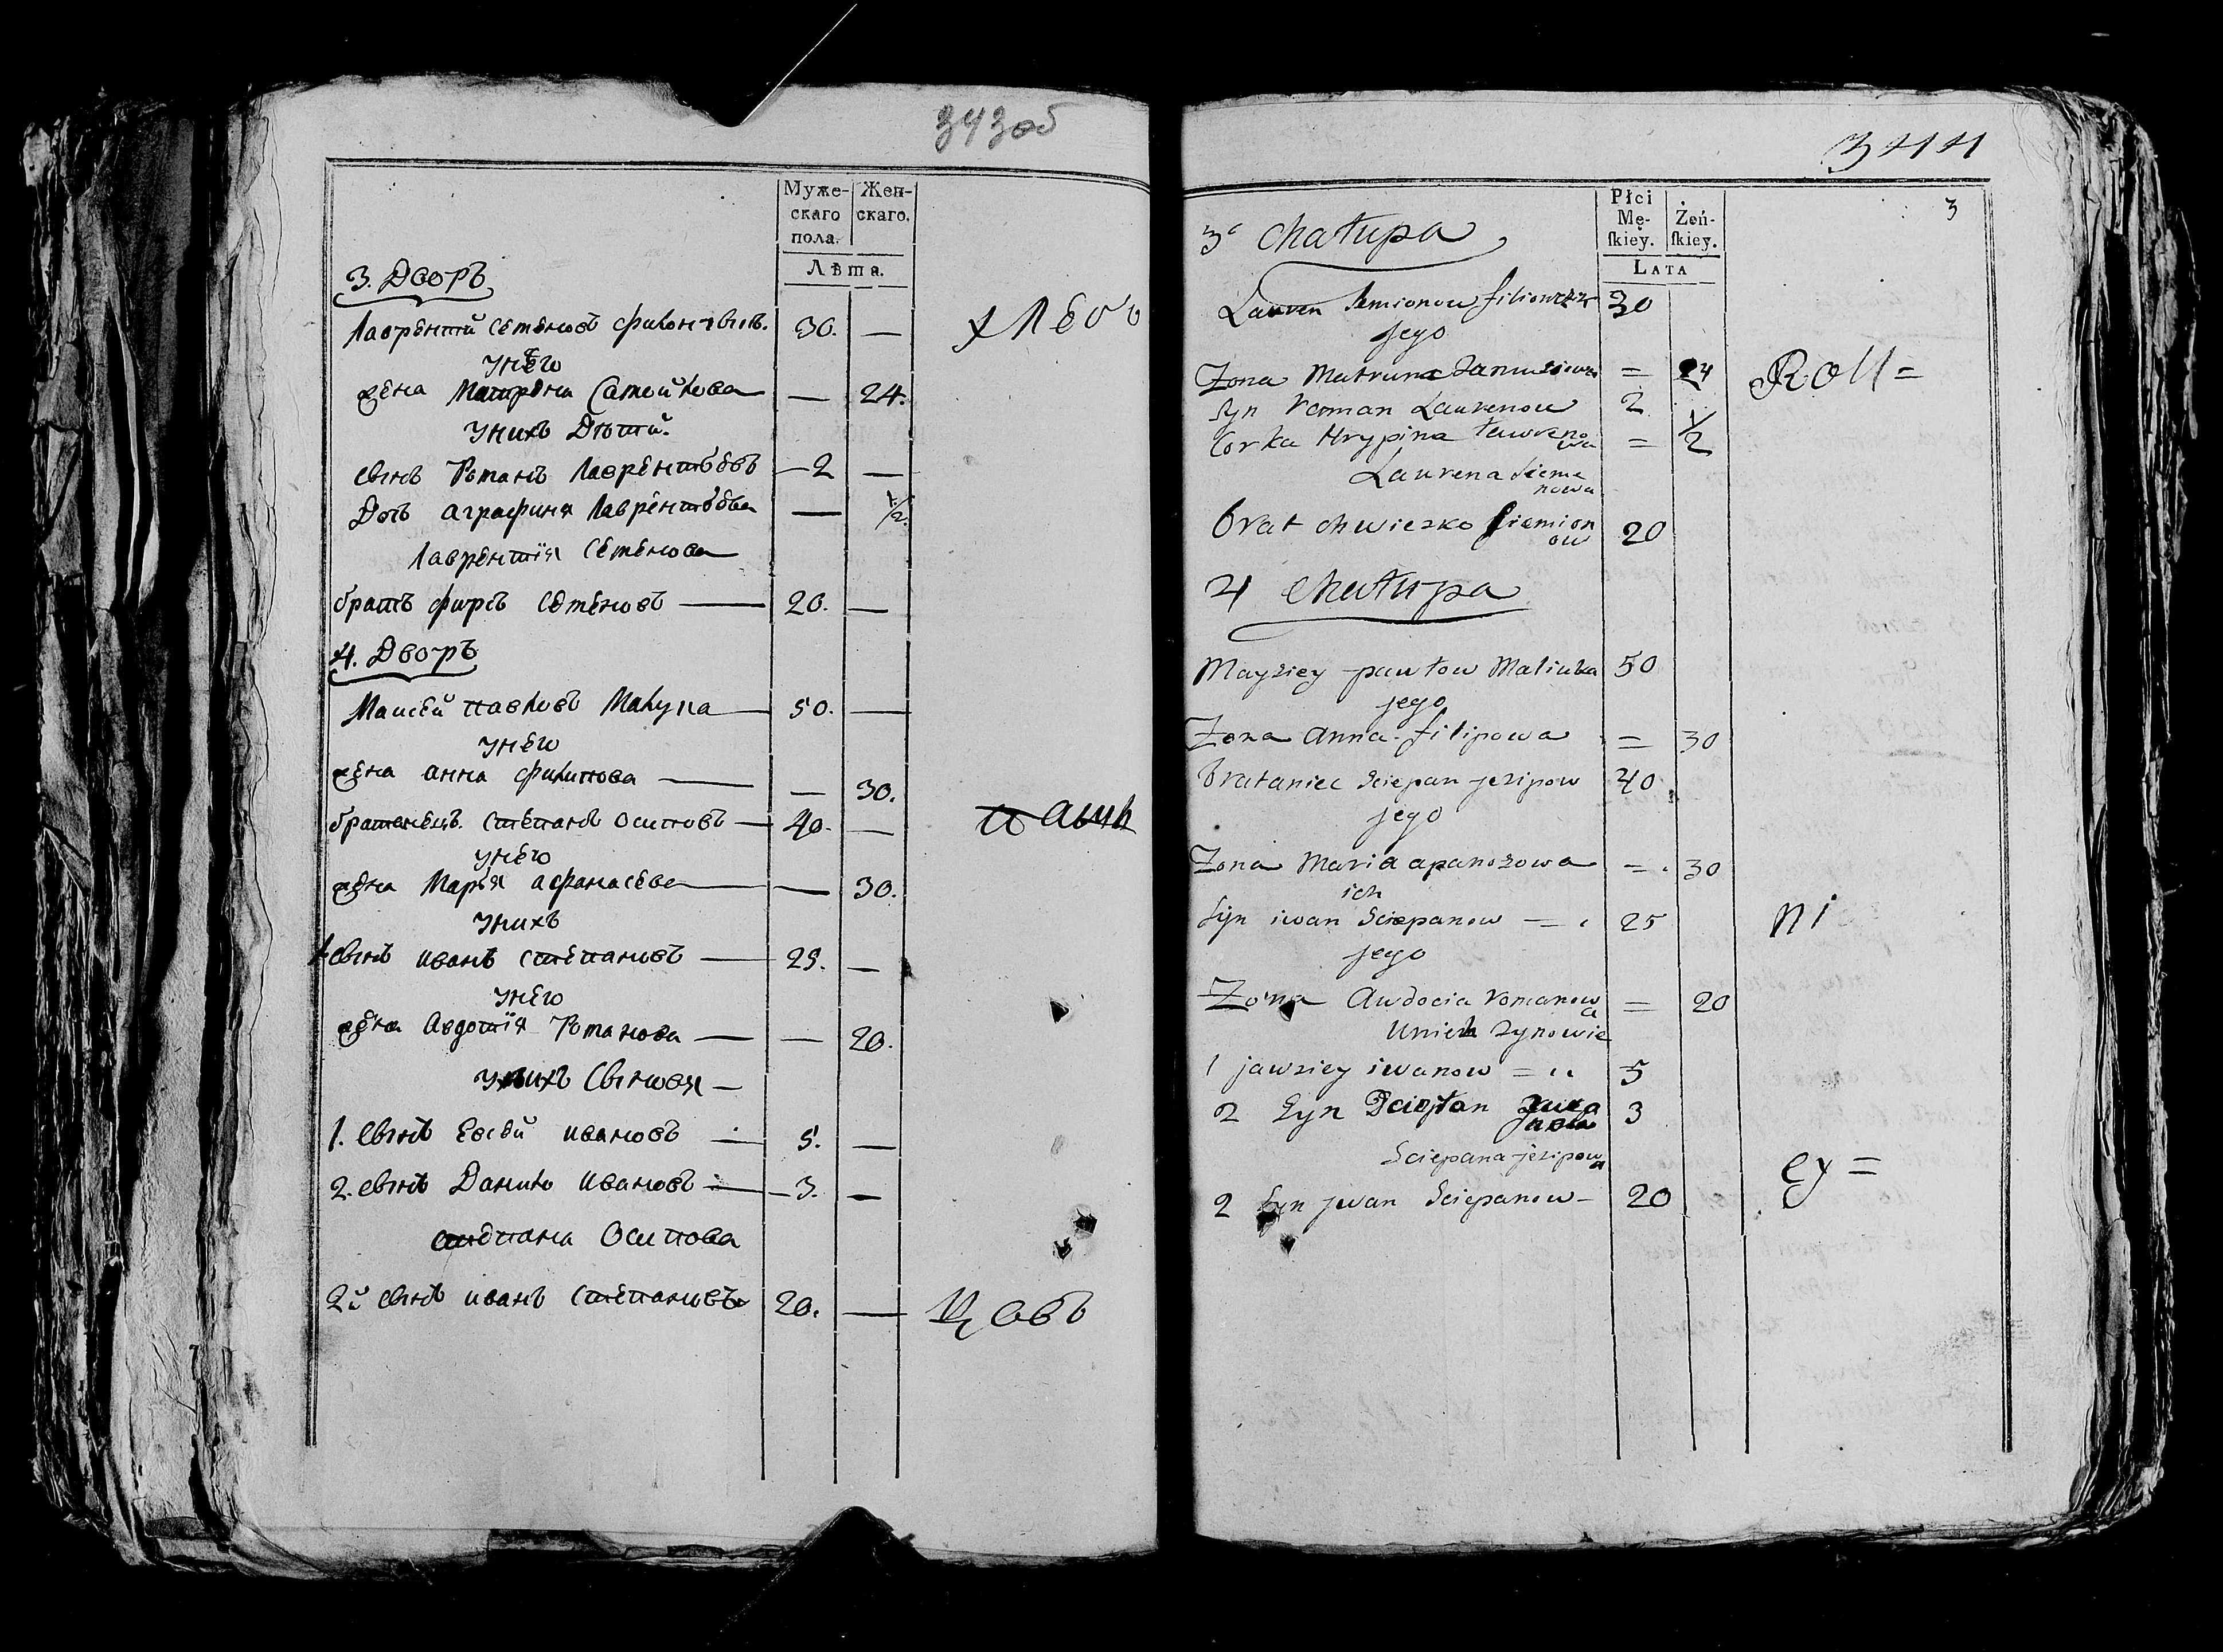 343 об
Муже-
скаго
пола.
Жен-
скаго.
Лѣта.
3. Дворъ
Лаврентій Семеновъ
30. —
хлебо
У него
жена Матрена Самойлова — 24.
У нихъ Дѣти.
сынъ Романъ Лаврентьевъ — 2 —
Дочь Аграфина Лаврентьева — 1/2.
Лаврентія Семенова
братъ Фирсъ Семеновъ — 20. —
4. Дворъ
Маисей Павловъ — 50. —
У него
жена анна Филипова — — 30.
братанецъ. Степанъ Осиповъ — 40. —
паши
У него
жена Марья афанасева — — 30.
У нихъ
1 сынъ иванъ Степановъ — 25. —
У него
жена Авдотія Романова — — 20.
У нихъ Сыновья —
1. сынъ Евсей ивановъ — 5. —
2. сынъ Данило ивановъ — 3. —
Степана Осипова
2й сынъ иванъ Степановъ 20. —
цовъ
344
3
Płci
Mę-
ſkiey.
Żeń-
ſkiey.
LATA
3 Chałupa
Lauren Semionow 30
jego
Zona Matruna = 24
Roll =
Syn Roman Laurenow 2
Corka Hrypina Lawrenowa = 1/2
Laurena Siemionowa
brat Chwiesko Siemionow 20
4 Chałupa
Maysiey pawłow Maliuka 50
jego
Zona Anna filipowa = 30
brataniec Sciepan jezipow 40
jego
Zona Maria apanozowa = 30
ich
Syn iwan Sciepanow = 25
ni
jego
Zona Awdocia Romanowa = 20
Unich synowie
1 jawsiey iwanow = 5
2 Syn 3
Sciepana jezipowa
ey =
2 Syn jwan Sciepanow - 20